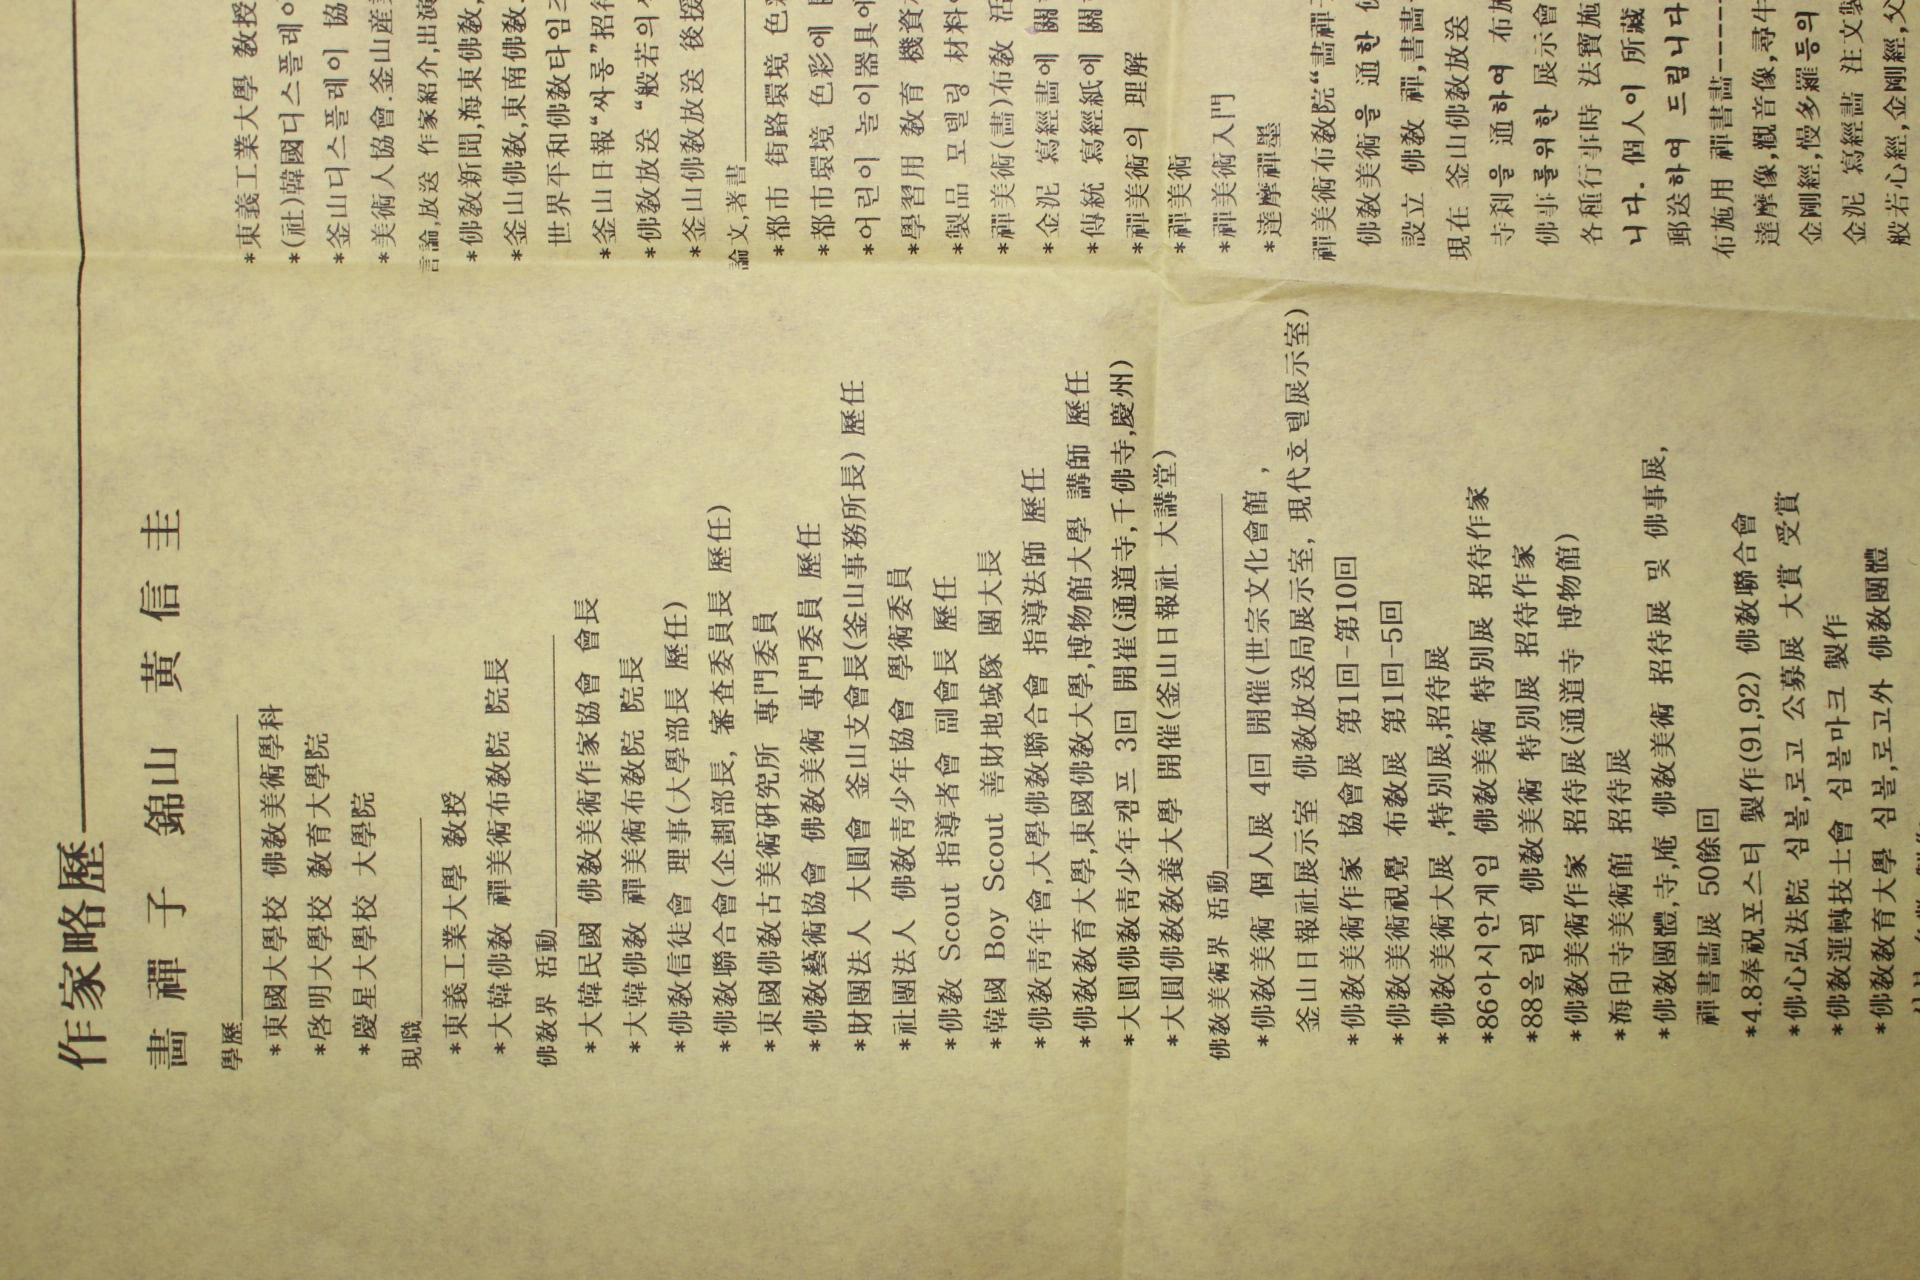 作家略歷
畵禪子 錦山 黃信圭
學歷
*東國大學校 佛敎美術學科
*啓明大學校 敎育大學院
*慶星大學校 大學院
現職
*東義工業大學 敎授
*大韓佛敎 禪美術布敎院 院長
佛敎界 活動
*大韓民國 佛敎美術作家協會 會長
*大韓佛敎 禪美術布敎院 院長
*佛敎信徒會 理事(大學部長 歷任)
*佛敎聯合會(企劃部長, 審査委員長 歷任)
*東國佛敎古美術硏究所 專門委員
*佛敎藝術協會 佛敎美術 專門委員 歷任
*財團法人 大圓會 釜山支會長(釜山事務所長) 歷任
*社團法人 佛敎靑少年協會 學術委員
*佛敎 Scout 指導者會 副會長 歷任
*韓國 Boy Scout 善財地域隊 團大長
*佛敎靑年會,大學佛敎聯合會 指導法師 歷任
*佛敎敎育大學,東國佛敎大學,博物館大學 講師 歷任
*大圓佛敎靑少年캠프 3回 開崔(通道寺,千佛寺,慶州)
*大圓佛敎敎養大學 開催(釜山日報社 大講堂)
佛敎美術界 活動
*佛敎美術 個人展 4回 開催(世宗文化會館 ,
釜山日報社展示室 佛敎放送局展示室, 現代호텔展示室)
*佛敎美術作家 協會展 第1回-第10回
*佛敎美術視覺 布敎展 第1回-5回
*佛敎美術大展 ,特別展,招待展
*86아시안게임 佛敎美術 特別展 招待作家
*88올림픽 佛敎美術 特別展 招待作家
*佛敎美術作家 招待展(通道寺 博物館)
*海印寺美術館 招待展
*佛敎團體,寺,庵 佛敎美術 招待展 및 佛事展,
禪書畵展 50餘回
*4.8奉祝포스터 製作(91,92) 佛敎聯合會
*佛心弘法院 심볼,로고 公募展 大賞 受賞
*佛敎運轉技士會 심볼마크 製作
*佛敎敎育大學 심볼,로고外 佛敎團體
*東義工業大學 敎授
*(社)韓國디스플레이
*釜山디스플레이 協
*美術人協會.釜山産
言論,放送 作家紹介,出演
*佛敎新聞,海東佛敎,
*釜山佛敎,東南佛敎
世界平和佛敎타임즈
*釜山日報“싸롱”招待
*佛敎放送 “般若의
*釜山佛敎放送 後援
論文,著書
*都市 街路環境 色彩
*都市環境 色彩에
*어린이 놀이器具에
*學習用 敎育 機資
*製品 모델링 材料
*禪美術(畵)布敎 活
*金泥 寫經畵에 關
*傳統 寫經紙에 關
*禪美術의 理解
*禪美術
*禪美術入門
*達摩禪墨
禪美術布敎院“畵禪
佛敎美術을 通한
設立 佛敎 禪,書畵
現在 釜山佛敎放送
寺刹을 通하여 布施
佛事를위한 展示會
各種行事時 法寶施
니다. 個人이 所藏
郵送하여 드립니다
布施用 禪書畵-----
達摩像,觀音像,尋牛
金剛經,慢多羅등의
金泥 寫經畵 注文製
般若心經,金剛經,父